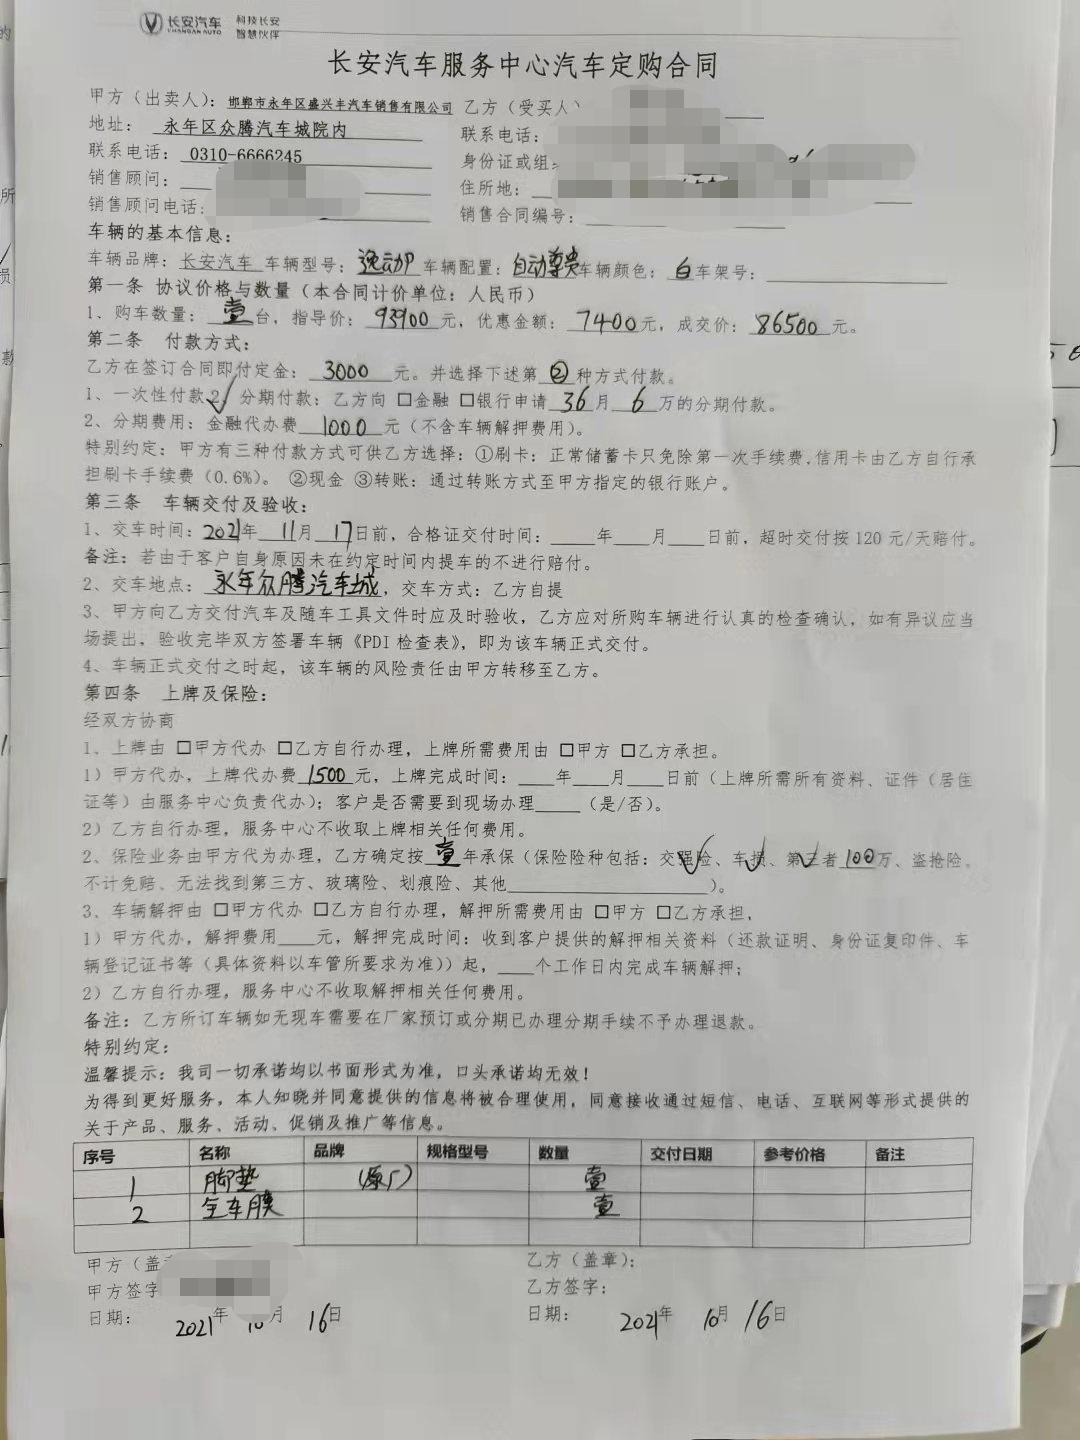 长安汽车 科技长安
CHANGAN AUTO 智慧伙伴
长安汽车服务中心汽车定购合同
甲方（出卖人）：邯郸市永年区盛兴丰汽车销售有限公司 乙方（受买人）
地址： 永年区众腾汽车城院内 联系电话：
联系电话： 0310-6666245 身份证或组
销售顾问： 住所地：
销售顾问电话： 销售合同编号：
车辆的基本信息：
车辆品牌：长安汽车 车辆型号：逸动 车辆配置：自动尊贵 车辆颜色：白 车架号：
第一条 协议价格与数量（本合同计价单位：人民币）
1、购车数量： 壹 台，指导价： 93900 元，优惠金额： 7400 元，成交价： 86500 元。
第二条 付款方式：
乙方在签订合同即付定金： 3000 元。并选择下述第 ② 种方式付款。
1、一次性付款 2、√ 分期付款：乙方向 □金融 □银行申请 36 月 6 万的分期付款。
2、分期费用：金融代办费 1000 元（不含车辆解押费用）。
特别约定：甲方有三种付款方式可供乙方选择：①刷卡：正常储蓄卡只免除第一次手续费，信用卡由乙方自行承
担刷卡手续费（0.6%）。 ②现金 ③转账：通过转账方式至甲方指定的银行账户。
第三条 车辆交付及验收：
1、交车时间：2021年 11月 17日前，合格证交付时间：____年____月____日前，超时交付按 120 元/天赔付。
备注：若由于客户自身原因未在约定时间内提车的不进行赔付。
2、交车地点： 永年众腾汽车城，交车方式：乙方自提
3、甲方向乙方交付汽车及随车工具文件时应及时验收，乙方应对所购车辆进行认真的检查确认，如有异议应当
场提出，验收完毕双方签署车辆《PDI 检查表》，即为该车辆正式交付。
4、车辆正式交付之时起，该车辆的风险责任由甲方转移至乙方。
第四条 上牌及保险：
经双方协商
1、上牌由 □甲方代办 □乙方自行办理，上牌所需费用由 □甲方 □乙方承担。
1）甲方代办，上牌代办费 1500 元，上牌完成时间：____年____月____日前（上牌所需所有资料、证件（居住
证等）由服务中心负责代办）；客户是否需要到现场办理_____（是/否）。
2）乙方自行办理，服务中心不收取上牌相关任何费用。
2、保险业务由甲方代为办理，乙方确定按 壹 年承保（保险险种包括：交强险、车损、第三者 100 万、盗抢险、
不计免赔、无法找到第三方、玻璃险、划痕险、其他____________________）。
3、车辆解押由 □甲方代办 □乙方自行办理，解押所需费用由 □甲方 □乙方承担，
1）甲方代办，解押费用____元，解押完成时间：收到客户提供的解押相关资料（还款证明、身份证复印件、车
辆登记证书等（具体资料以车管所要求为准））起，____个工作日内完成车辆解押；
2）乙方自行办理，服务中心不收取解押相关任何费用。
备注：乙方所订车辆如无现车需要在厂家预订或分期已办理分期手续不予办理退款。
特别约定：
温馨提示：我司一切承诺均以书面形式为准，口头承诺均无效！
为得到更好服务，本人知晓并同意提供的信息将被合理使用，同意接收通过短信、电话、互联网等形式提供的
关于产品、服务、活动、促销及推广等信息。
序号 名称 品牌 规格型号 数量 交付日期 参考价格 备注
1 脚垫 （原厂） 壹
2 全车膜 壹
甲方（盖 乙方（盖章）：
甲方签字 乙方签字：
日期： 2021年 10月 16日 日期： 2021年 10月 16日